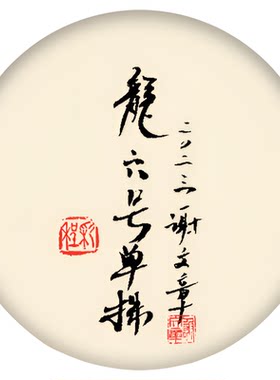 龍六号单株
二〇二三谢文章